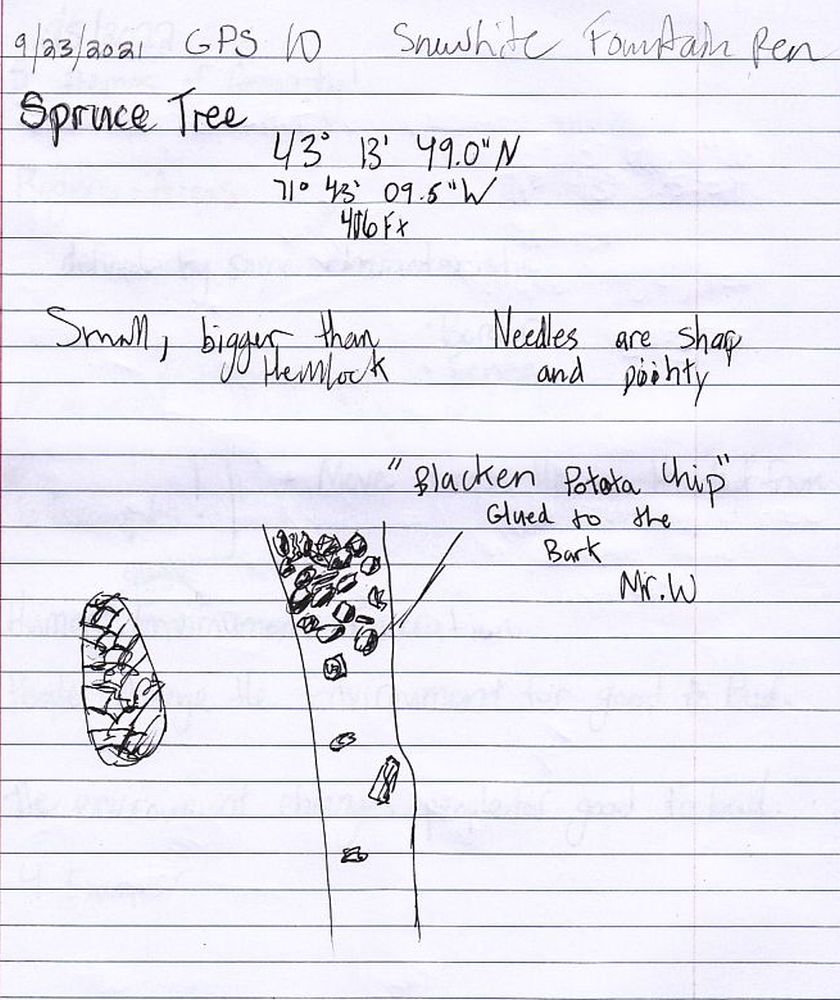 9/23/2021 GPS 10 Snowhite Fountain Pen
Spruce Tree
43° 13' 49.0"N
71° 43' 09.5"W
406 Ft
Small, bigger than
Hemlock
Needles are sharp
and pointy
"Blacken Potota Chip"
Glued to the
Bark
Mr. W